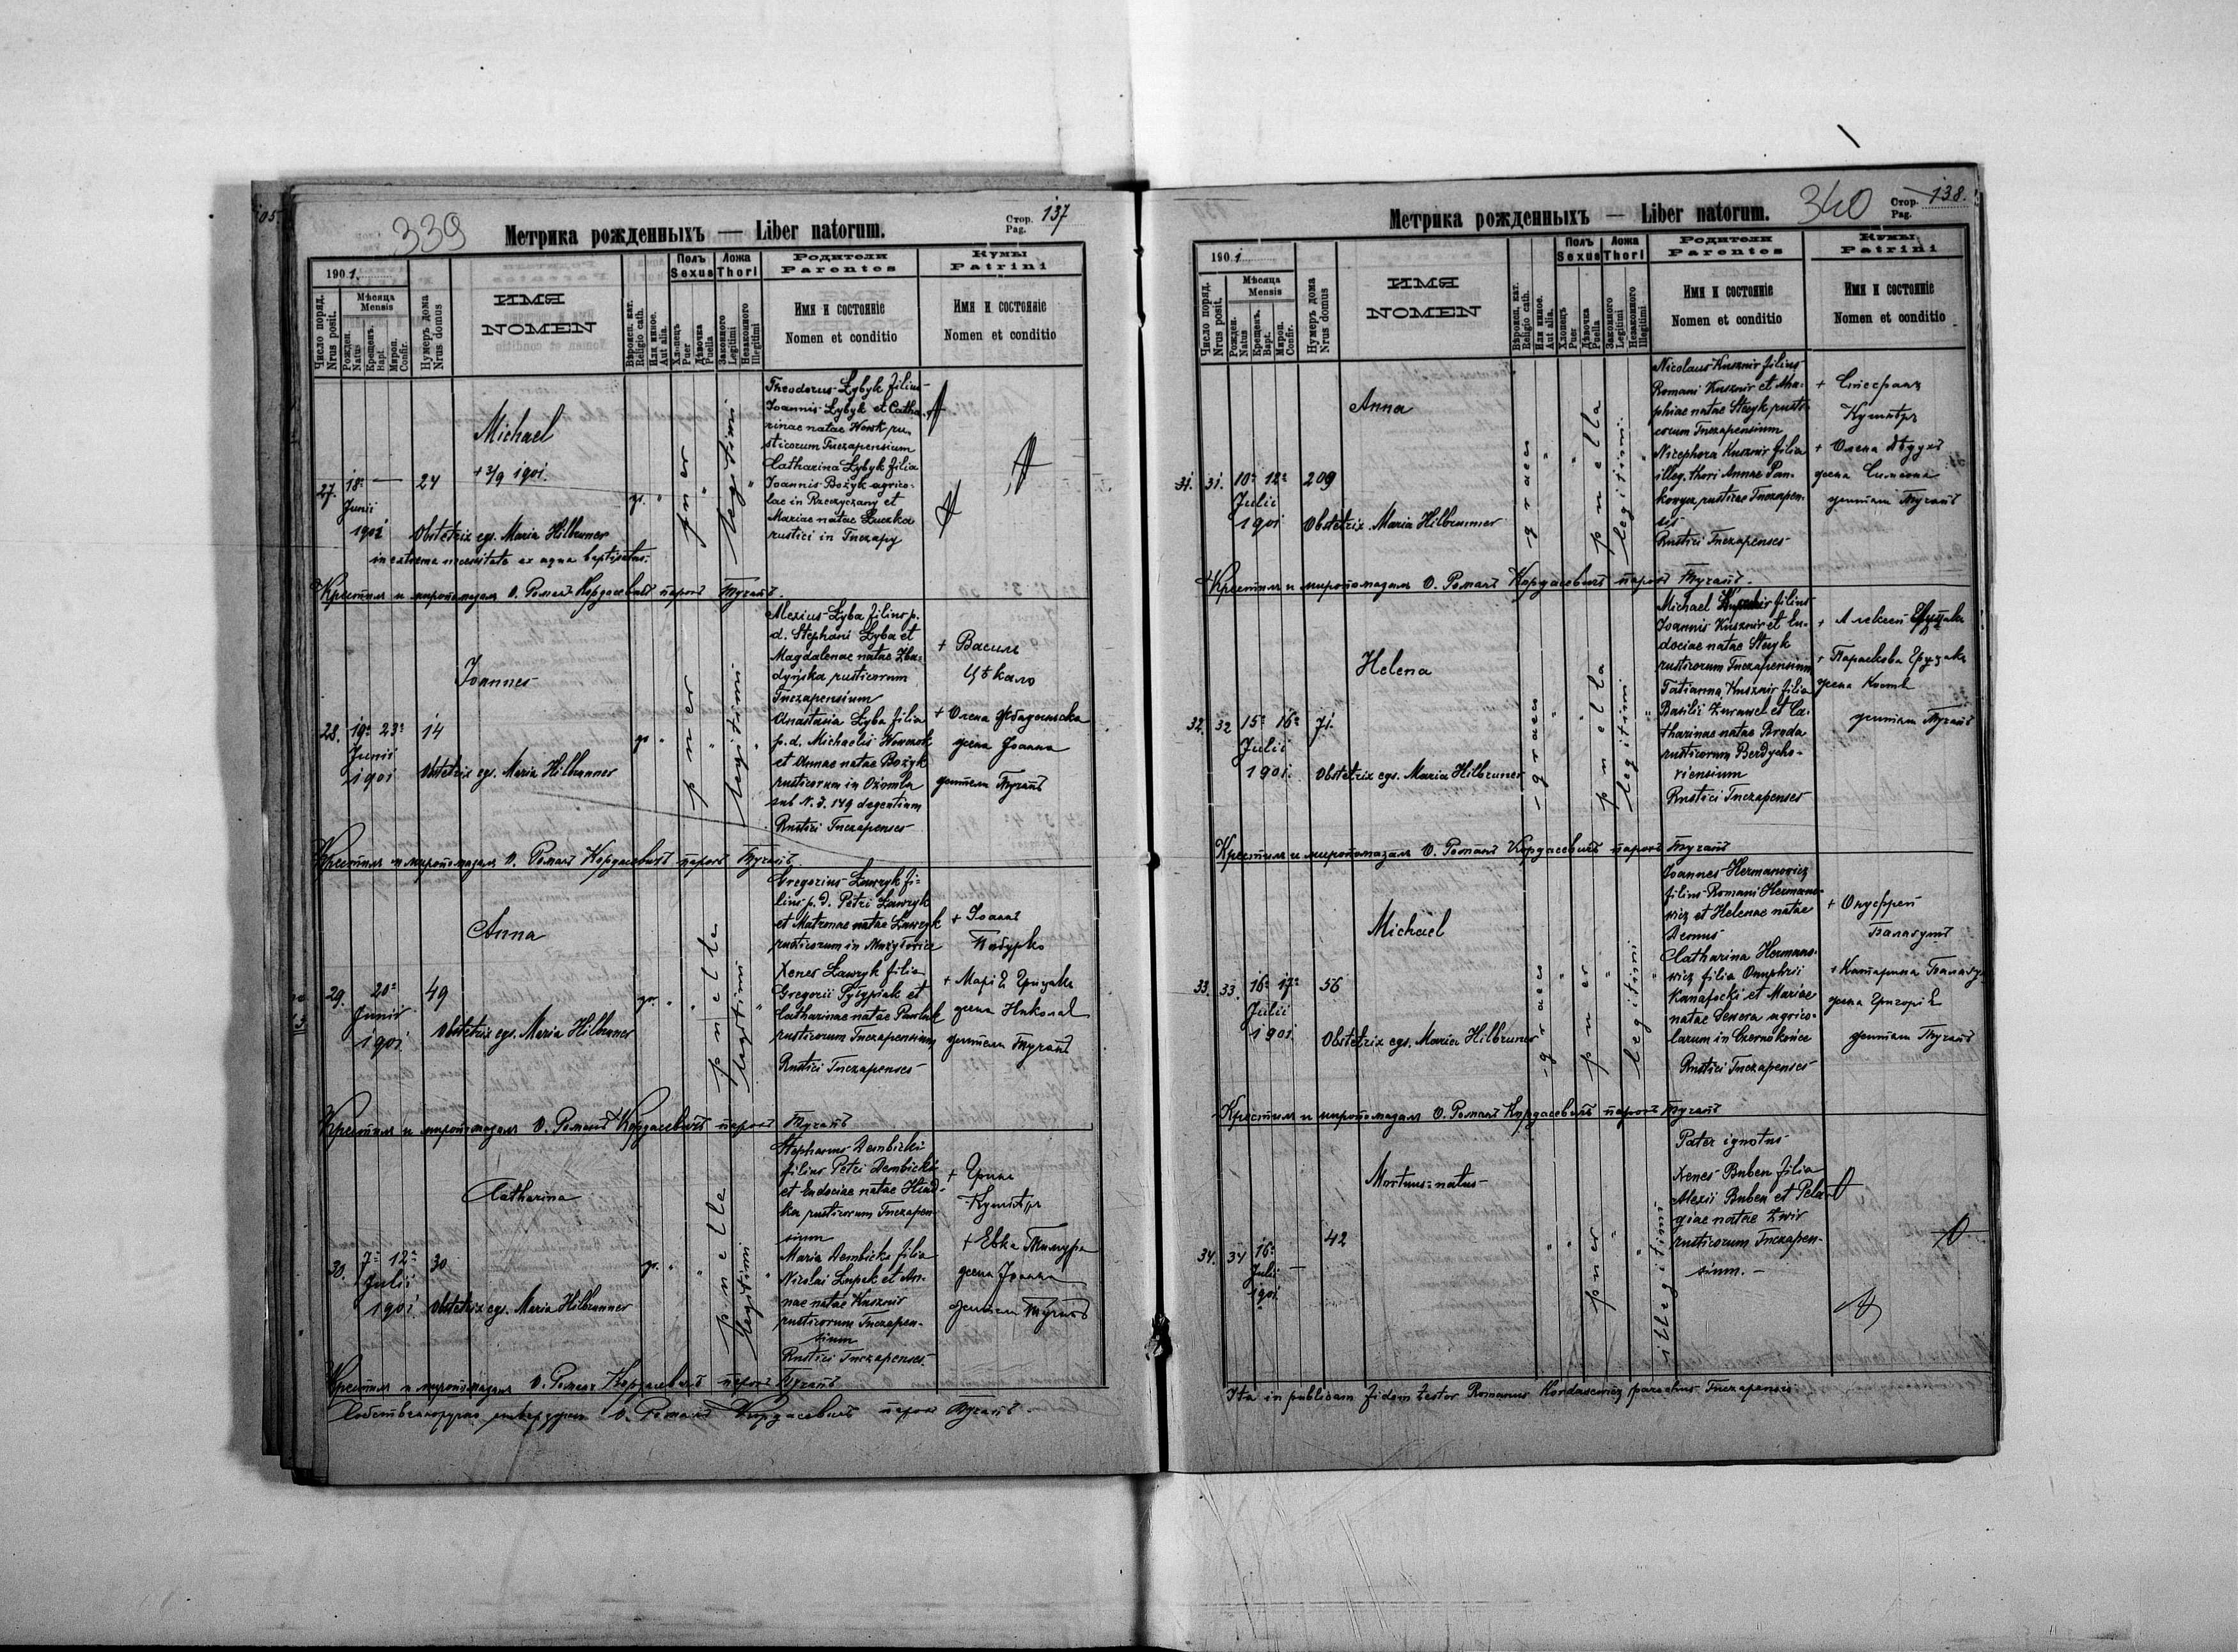 339
Метрика рожденныхъ — Liber natorum.
Стор. Pag. 137
1901.
Число поряд. Nrus posit.
Мѣсяца Mensis
Рожден. Natus
Крещенъ. Bapt.
Мирοп. Confir.
Нумеръ дома Nrus domus
ИМЯ
NOMEN
Вѣроисп. кат. Religio cath.
Или инное. Aut alia.
Полъ Sexus
Хлопецъ Puer
Дѣвочка Puella
Ложа Thori
Законного Legitimi
Незаконного Illegitimi
Родители
Parentes
Имя и состоянiе
Nomen et conditio
Кумы
Patrini
Имя и состоянiе
Nomen et conditio
27. 18a — Junii 1901 24
Michael
+ 3/9 1901.
Obstetrix egs. Maria Hilbruner
in extrema necessitate ex aqua baptisatus.
gr. " puer " legitimi "
Theodorus Łybyk filius
Joannis Łybyk et Catha-
rinae natae Howk ru-
sticorum Tuczapensium
Catharina Łybyk filia
Joannis Bożyk agrico-
lae in Rzeczyczany et
Mariae natae Łuczka
rustici in Tuczapy
Крестилъ и миропомазалъ О. Романъ Кордасевичъ парохъ Тучапъ.
28. 19a 23a Junii 1901 14
Joannes
Obstetrix egs. Maria Hilbrunner
gr. " puer " legitimi "
Alexius Łyba filius p.
d. Stephani Łyba et
Magdalenae natae Zba-
dyńska rusticorum
Tuczapensium
Anastasia Łyba filia
p. d. Michaelis Howczok
et Annae natae Bożyk
rusticorum in Ożomla
sub N. d. 149 degentium
Rustici Tuczapenses
+ Василь
Цѣкало
+ Олена
жена Іоанна
жители Тучапъ
Крестилъ и миропомазалъ О. Романъ Кордасевичъ парохъ Тучапъ.
29. 20a Junii 1901 49
Anna
Obstetrix egs. Maria Hilbruner
gr. " " puella legitimi "
Gregorius Ławryk fi-
lius p. d. Petri Ławryk
et Matronae natae Ławryk
rusticorum in Mużyłowice
Xenes Ławryk filia
Gregorii Pyłypiak et
Catharinae natae Pawluk
rusticorum Tuczapensium
Rustici Tuczapenses
+ Іоаннъ
+ Марія Грицакъ
жена Николая
жители Тучапъ
Крестилъ и миропомазалъ О. Романъ Кордасевичъ парохъ Тучапъ
30. 7a 12a Julii 1901 30
Catharina
Obstetrix egs. Maria Hilbrunner
gr. " " puella legitimi "
Stephanus Dembicki
filius Petri Dembicki
et Eudociae natae Hlad-
ka rusticorum Tuczapen-
sium
Maria Dembicka filia
Nicolai Łupak et An-
nae natae Kusznir
rusticorum Tuczapen-
sium
Rustici Tuczapenses
+ Гринь
Кушнѣръ
+ Евка
жена Іоанна
жители Тучапъ
Крестилъ и миропомазалъ О. Романъ Кордасевичъ парохъ Тучапъ
Собственоручно О. Романъ Кордасевичъ парохъ Тучапъ.
Метрика рожденныхъ — Liber natorum.
340
Стор. Pag. 138.
1901
Число поряд. Nrus posit.
Мѣсяца Mensis
Рожден. Natus
Крещенъ. Bapt.
Мироп. Confir.
Нумеръ дома Nrus domus
ИМЯ
NOMEN
Вѣроисп. кат. Religio cath.
Или инное. Aut alia.
Полъ Sexus
Хлопецъ Puer
Дѣвочка Puella
Ложа Thori
Законного Legitimi
Незаконного Illegitimi
Родители
Parentes
Имя и состоянiе
Nomen et conditio
Кумы
Patrini
Имя и состоянiе
Nomen et conditio
31. 31. 10a 12a Julii 1901 209
Anna
Obstetrix. Maria Hilbrunner
graeco " " puella legitimi. "
Nicolaus Kusznir filius
Romani Kusznir et Ma-
phiae natae Stecyk rusti-
corum Tuczapensium
Nicephora Kusznir filia
illeg. thori Annae Pan-
konycz, rusticae Tuczapen-
sis
Rustici Tuczapenses
+ Стефанъ
Кушнѣръ
+ Олена
жена Симеона
жители Тучапъ
Крестилъ и миропомазалъ О. Романъ Кордасевичъ парохъ Тучапъ.
32. 32 15a 16a Julii 1901. 71.
Helena
Obstetrix egs. Maria Hilbruner
graeco " " puella legitimi "
Michael Kusznir filius
Joannis Kusznir et Eu-
dociae natae Stecyk
rusticorum Tuczapensium
Tatianna Kusznir filia
Basilii Zurawel et Ca-
tharinae natae Broda
rusticorum Berdycho-
viensium
Rustici Tuczapenses
+ Алексей
+ Параскева Грицакъ
жена Костѣ
жители Тучапъ
Крестилъ и миропомазалъ О. Романъ Кордасевичъ парохъ Тучапъ
33. 33. 16a 17a Julii 1901 56
Michael
Obstetrix egs. Maria Hilbruner
graeco " puer " legitimi "
Joannes Hermanowicz
filius Romani Hermano-
wicz et Helenae natae
Demus
Catharina Hermano-
wicz filia Onuphrii
Kanafocki et Mariae
natae Dewera agrico-
larum in Czernokońce
Rustici Tuczapenses
+ Онуфрей
Балагутъ
+ Катарина
жена Григорія
жители Тучапъ
Крестилъ и миропомазалъ О. Романъ Кордасевичъ парохъ Тучапъ
34. 34 16a — Julii 1901 42
Mortuus-natus
" " puer " " illegitimi
Pater ignotus
Xenes Buben filia
Alexii Buben et Pela-
giae natae Żwir
rusticorum Tuczapen-
sium. —
Ita in publicam fidem testor Romanus Kordasewicz parochus Tuczapensis.